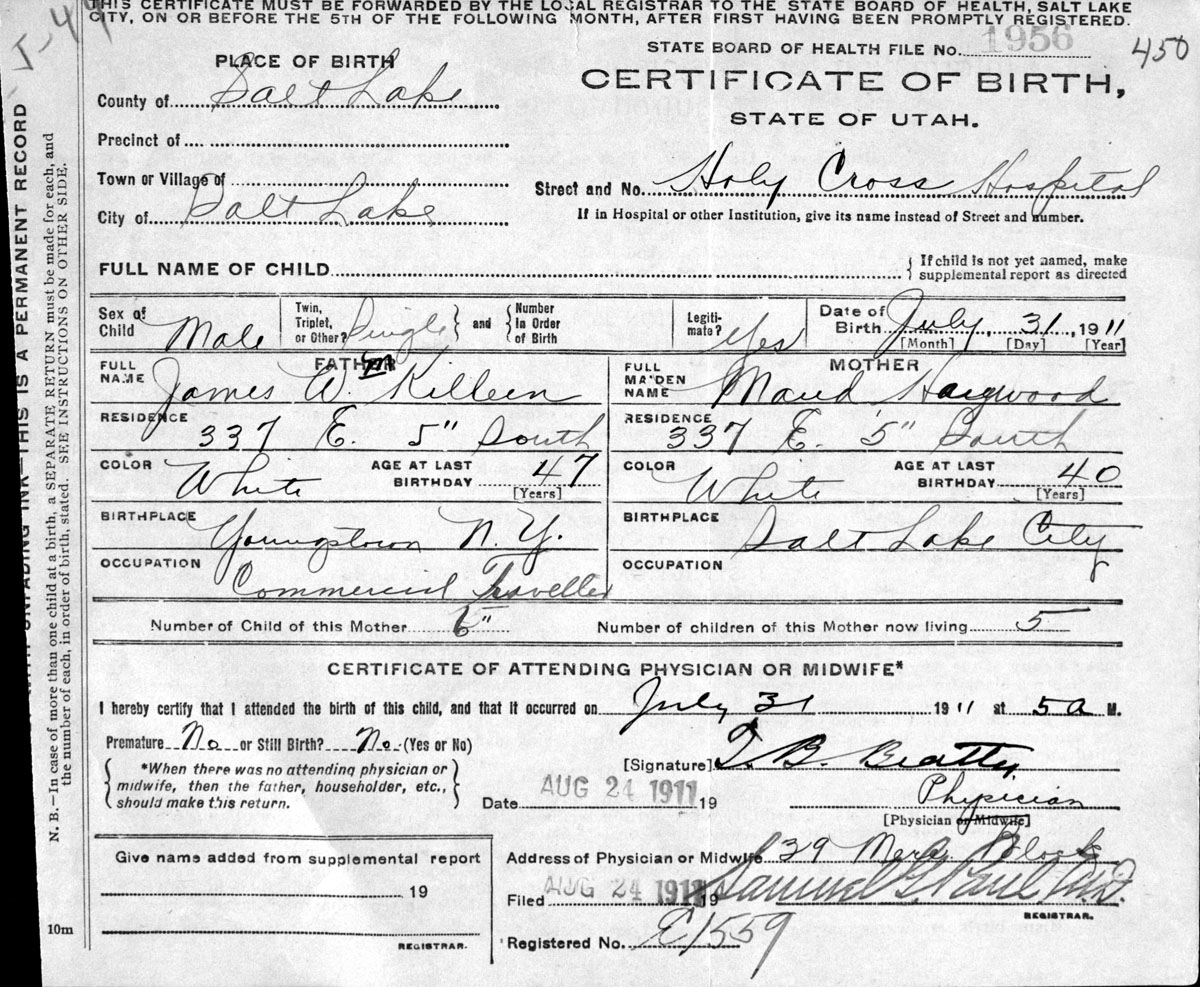 THIS CERTIFICATE MUST BE FORWARDED BY THE LOCAL REGISTRAR TO THE STATE BOARD OF HEALTH, SALT LAKE
CITY, ON OR BEFORE THE 5TH OF THE FOLLOWING MONTH, AFTER FIRST HAVING BEEN PROMPTLY REGISTERED.
STATE BOARD OF HEALTH FILE No. 1956
450
PLACE OF BIRTH
CERTIFICATE OF BIRTH,
STATE OF UTAH.
County of Salt Lake
Precinct of
Town or Village of
City of Salt Lake
Street and No. Holy Cross Hospital
If in Hospital or other Institution, give its name instead of Street and number.
FULL NAME OF CHILD
If child is not yet named, make
supplemental report as directed
Sex of Child Male
Twin, Triplet, or Other? Single
and
Number In Order of Birth
Legiti-mate? Yes
Date of Birth July, 31, 1911
[Month] [Day] [Year]
FATHER
FULL NAME James W. Killeen
RESIDENCE 337 E. 5" South
COLOR White
AGE AT LAST BIRTHDAY 47
[Years]
BIRTHPLACE Youngstown N.Y.
OCCUPATION Commercial Traveller
MOTHER
FULL MAIDEN NAME Maud Hagwood
RESIDENCE 337 E. 5" South
COLOR White
AGE AT LAST BIRTHDAY 40
[Years]
BIRTHPLACE Salt Lake City
OCCUPATION
Number of Child of this Mother
Number of children of this Mother now living 5
CERTIFICATE OF ATTENDING PHYSICIAN OR MIDWIFE*
I hereby certify that I attended the birth of this child, and that it occurred on July 31 1911 at 5 a M.
Premature No or Still Birth? No (Yes or No)
*When there was no attending physician or
midwife, then the father, householder, etc.,
should make this return.
[Signature] T. B. Beatty
Physician
[Physician or Midwife]
Date AUG 24 1911 19
Give name added from supplemental report
19
REGISTRAR.
Address of Physician or Midwife 39 Merc Block
Filed AUG 24 1911 19 Samuel G. Paul M.D.
REGISTRAR.
Registered No. E1559
10m
THIS IS A PERMANENT RECORD
N. B.—In case of more than one child at a birth, a SEPARATE RETURN must be made for each, and
the number of each, in order of birth, stated. SEE INSTRUCTIONS ON OTHER SIDE.